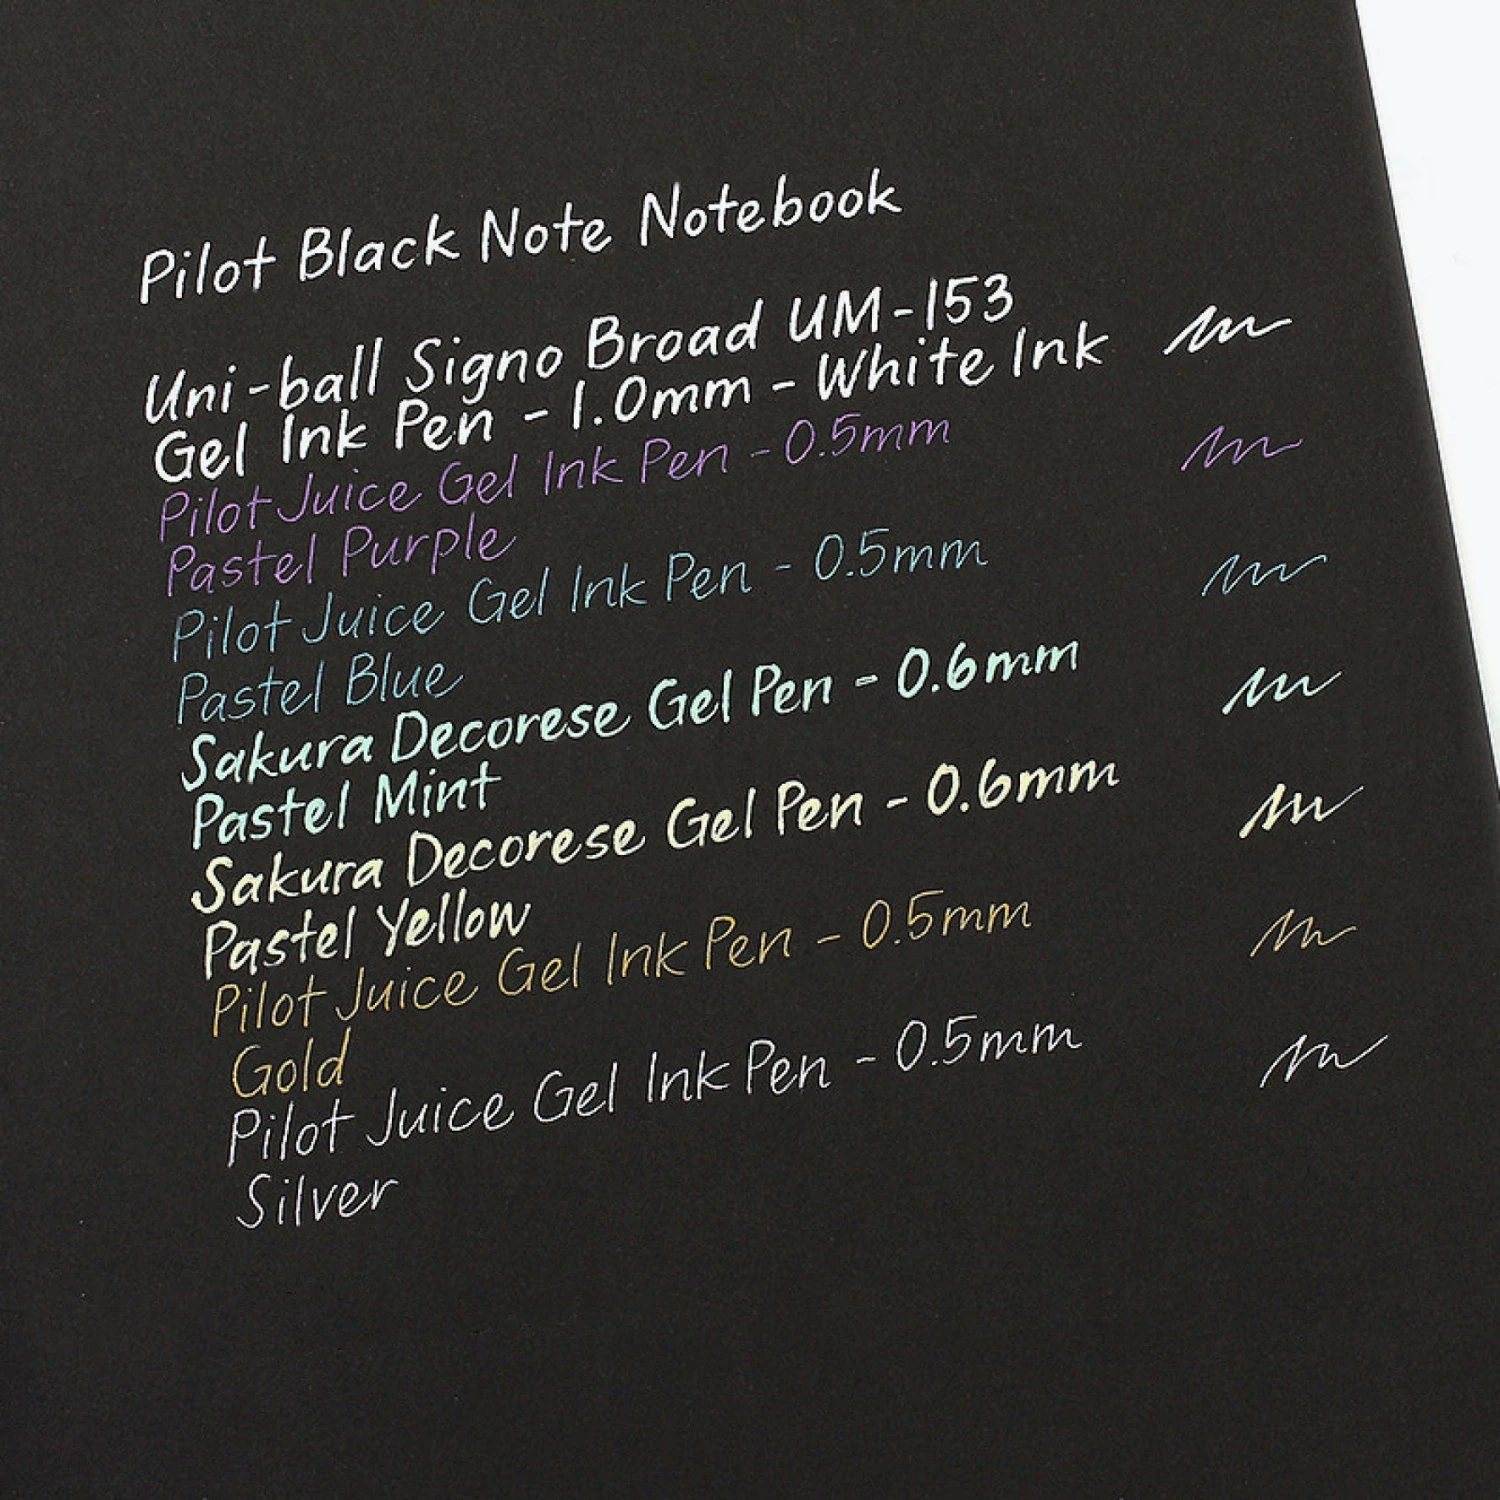 Pilot Black Note Notebook
Uni-ball Signo Broad UM-153
Gel Ink Pen - 1.0mm - White Ink
Pilot Juice Gel Ink Pen - 0.5mm
Pastel Purple
Pilot Juice Gel Ink Pen - 0.5mm
Pastel Blue
Sakura Decorese Gel Pen - 0.6mm
Pastel Mint
Sakura Decorese Gel Pen - 0.6mm
Pastel Yellow
Pilot Juice Gel Ink Pen - 0.5mm
Gold
Pilot Juice Gel Ink Pen - 0.5mm
Silver